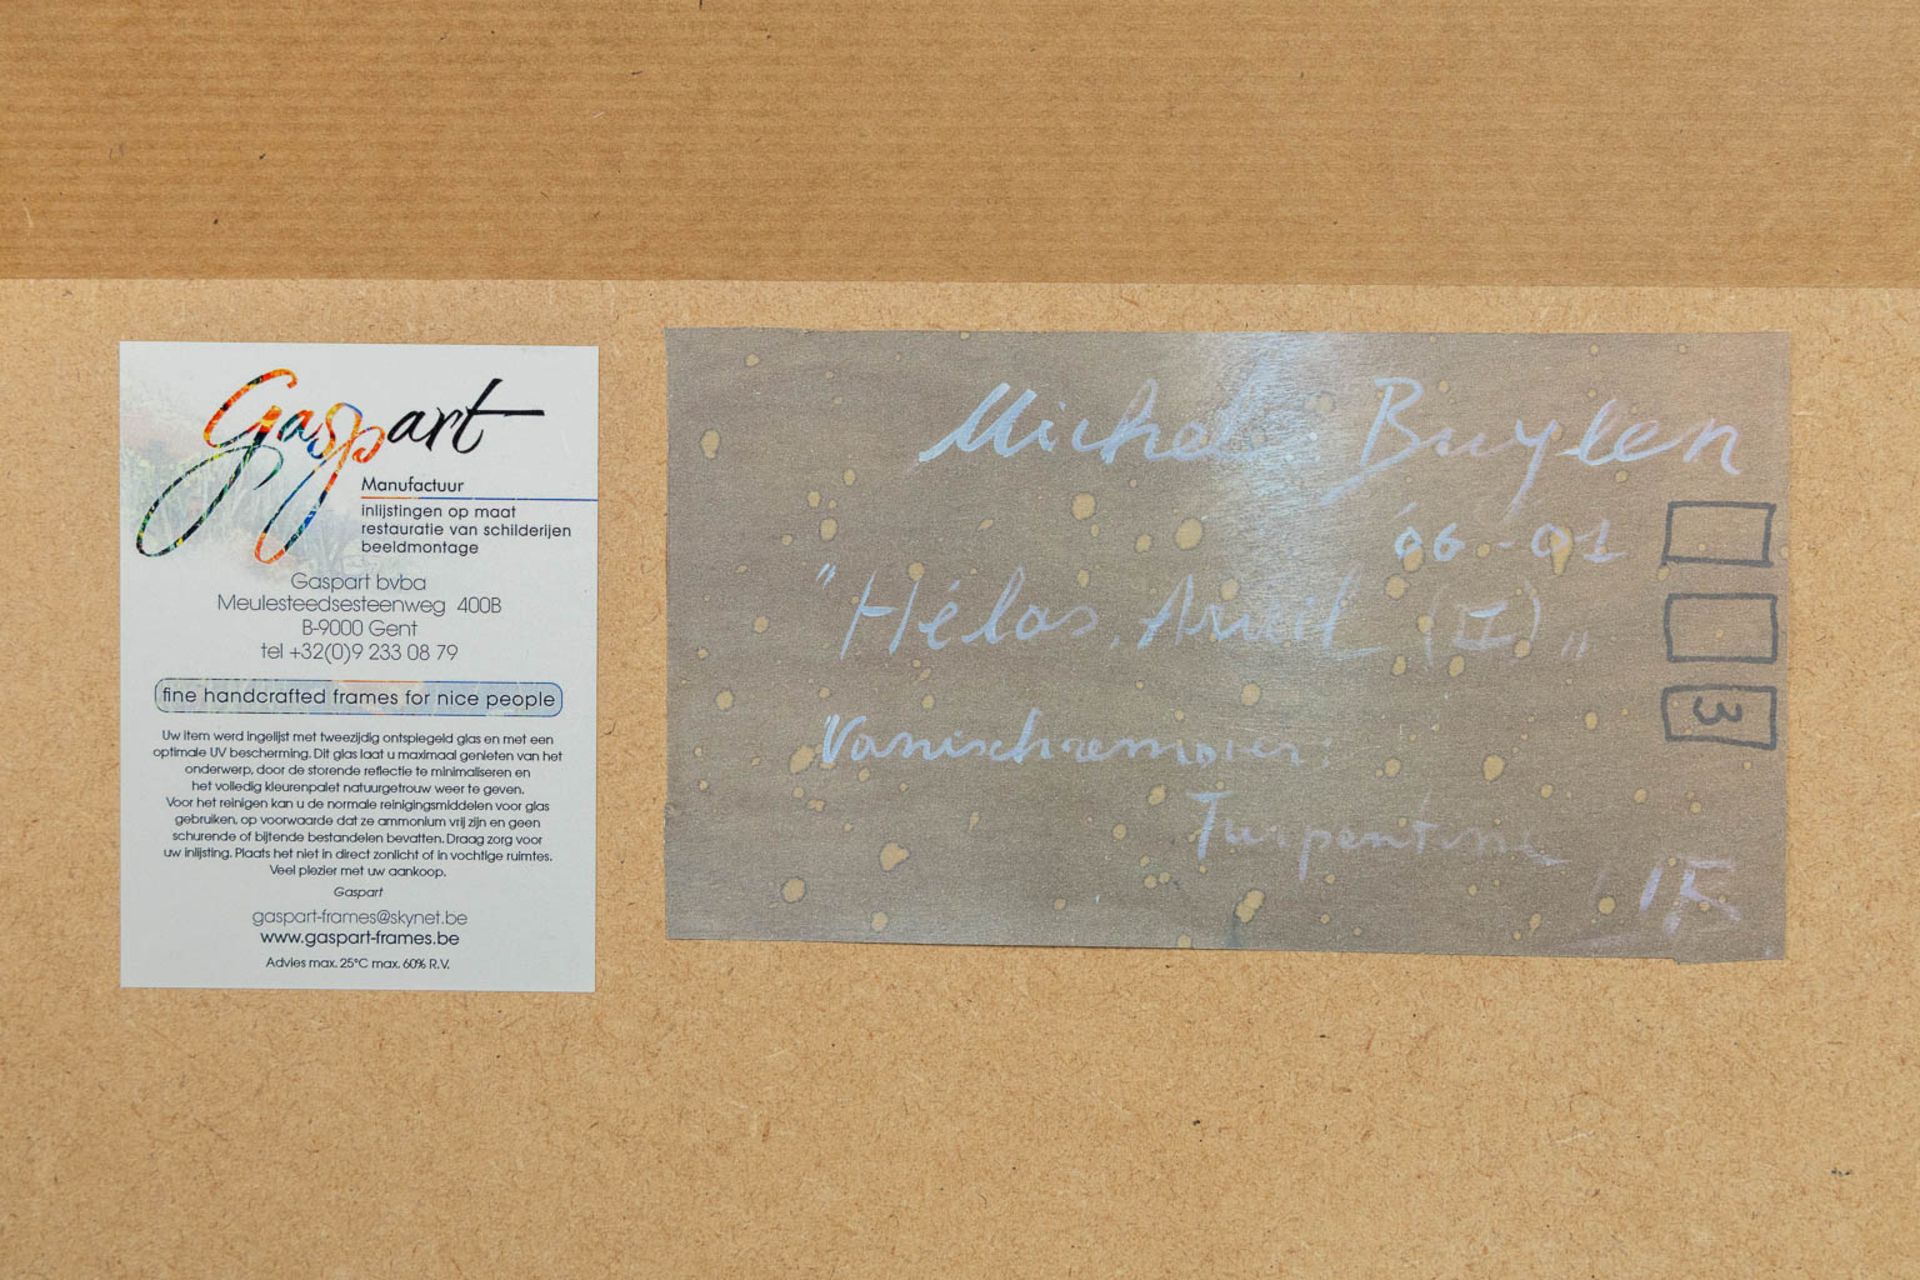 Gaspart
Manufactuur
inlijstingen op maat
restauratie van schilderijen
beeldmontage
Gaspart bvba
Meulesteedsesteenweg 400B
B-9000 Gent
tel +32(0)9 233 08 79
fine handcrafted frames for nice people
Uw item werd ingelijst met tweezijdig ontspiegeld glas en met een
optimale UV bescherming. Dit glas laat u maximaal genieten van het
onderwerp, door de storende reflectie te minimaliseren en
het volledig kleurenpalet natuurgetrouw weer te geven.
Voor het reinigen kan u de normale reinigingsmiddelen voor glas
gebruiken, op voorwaarde dat ze ammonium vrij zijn en geen
schurende of bijtende bestandelen bevatten. Draag zorg voor
uw inlijsting. Plaats het niet in direct zonlicht of in vochtige ruimtes.
Veel plezier met uw aankoop.
Gaspart
gaspart-frames@skynet.be
www.gaspart-frames.be
Advies max. 25°C max. 60% R.V.
Michel Buylen
06-01
"Hélas, (II)"
Turpentine
3